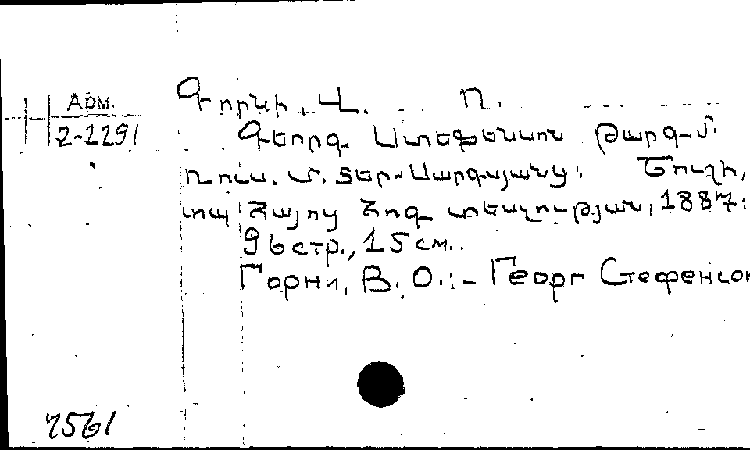 Арм.
2-2291
Գորնի, Վ. Ո.
Գեորգ Ստեֆենսոն թարգ-մ.
Ռուս. Մ. Տեր-Սարգսյանց: Շուշի,
տպ Հայոց հոգ տեսչության, 1887:
96 стр., 15 см.
Горни, В. О.:- Георг Стефенсон
7561